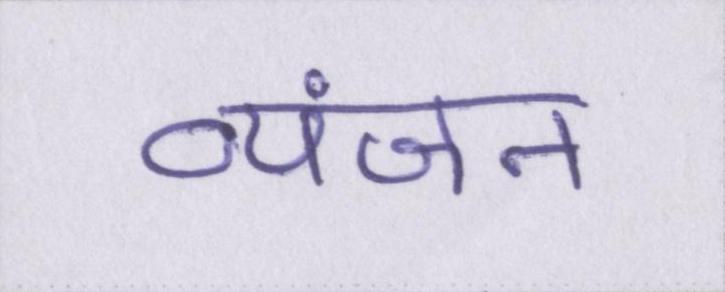 व्यंजन